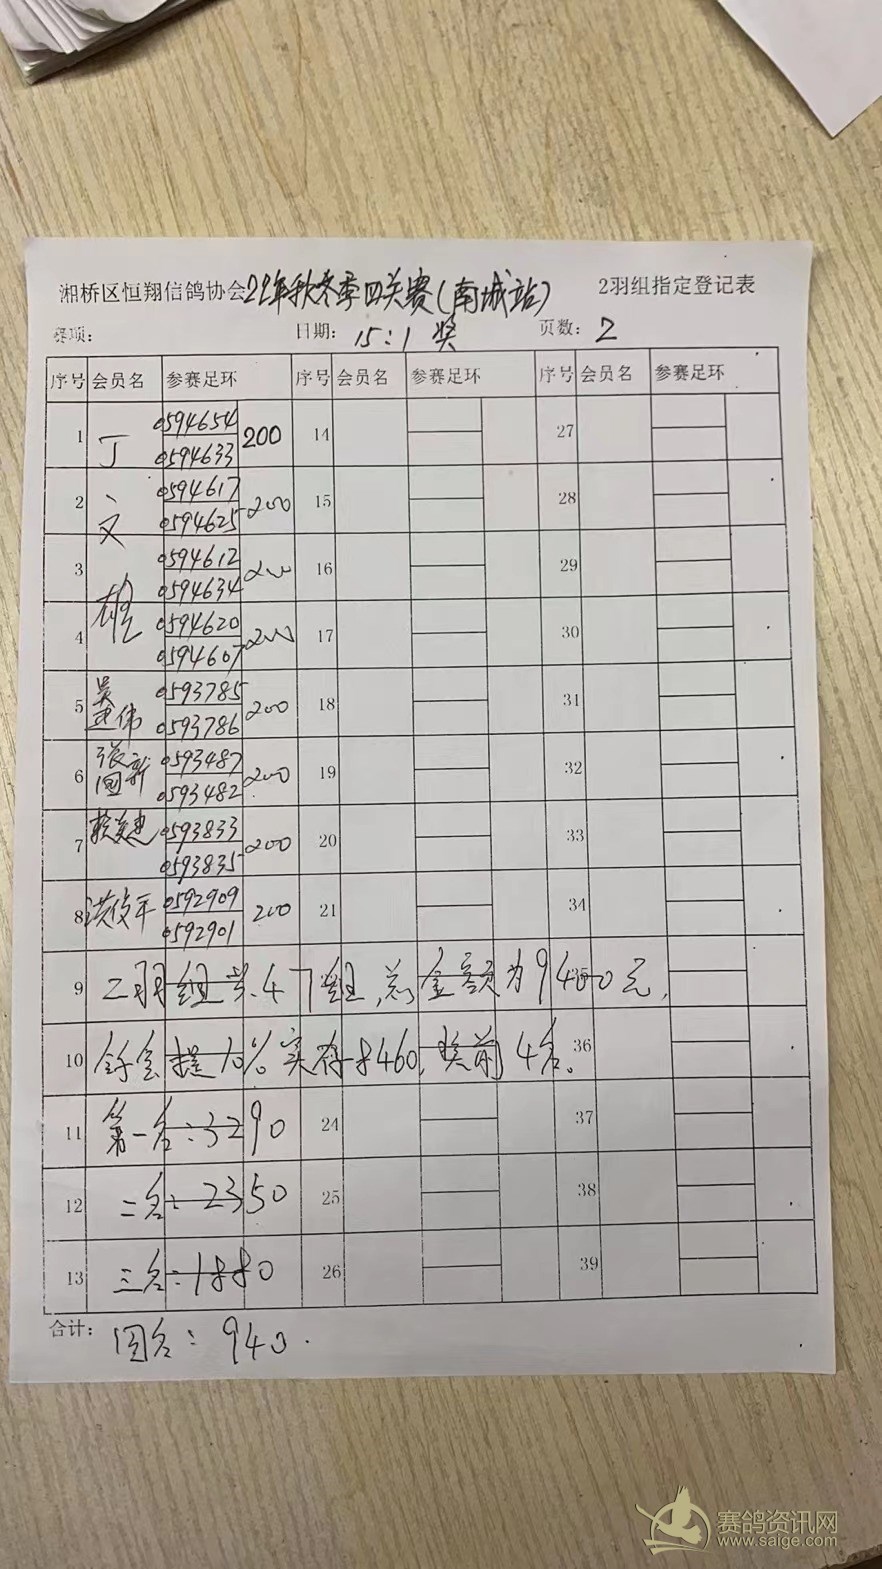 湘桥区恒翔信鸽协会22年秋冬季四关赛(南城站) 2羽组指定登记表
赛项: 日期: 15:1奖 页数: 2
序号 会员名 参赛足环 序号 会员名 参赛足环 序号 会员名 参赛足环
1 丁 0594654 200 14 27
0594633
2 文 0594617 200 15 28
0594625
3 0594612 200 16 29
0594634
4 雄 0594620 200 17 30
0594607
5 吴建伟 0593785 200 18 31
0593786
6 张国新 0593487 200 19 32
0593482
7 0593833 200 20 33
0593835
8 洪俊平 0592909 200 21 34
0592901
9 二羽组共47组,总金额为9400元,
10 协会提10%实存8460,奖前4名。 36
11 第一名:3290 24 37
12 二名:2350 25 38
13 三名:1880 26 39
合计: 四名:940.
赛鸽资讯网
www.saige.com